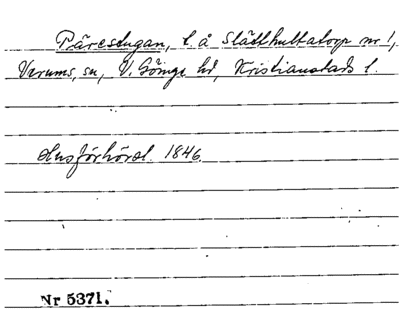 Pärestugan, t. å Slätthultatorp nr 1,
Verums, sn, V. Göinge hd, Kristianstads l.
Husförhörsl. 1846.
Nr 5371.